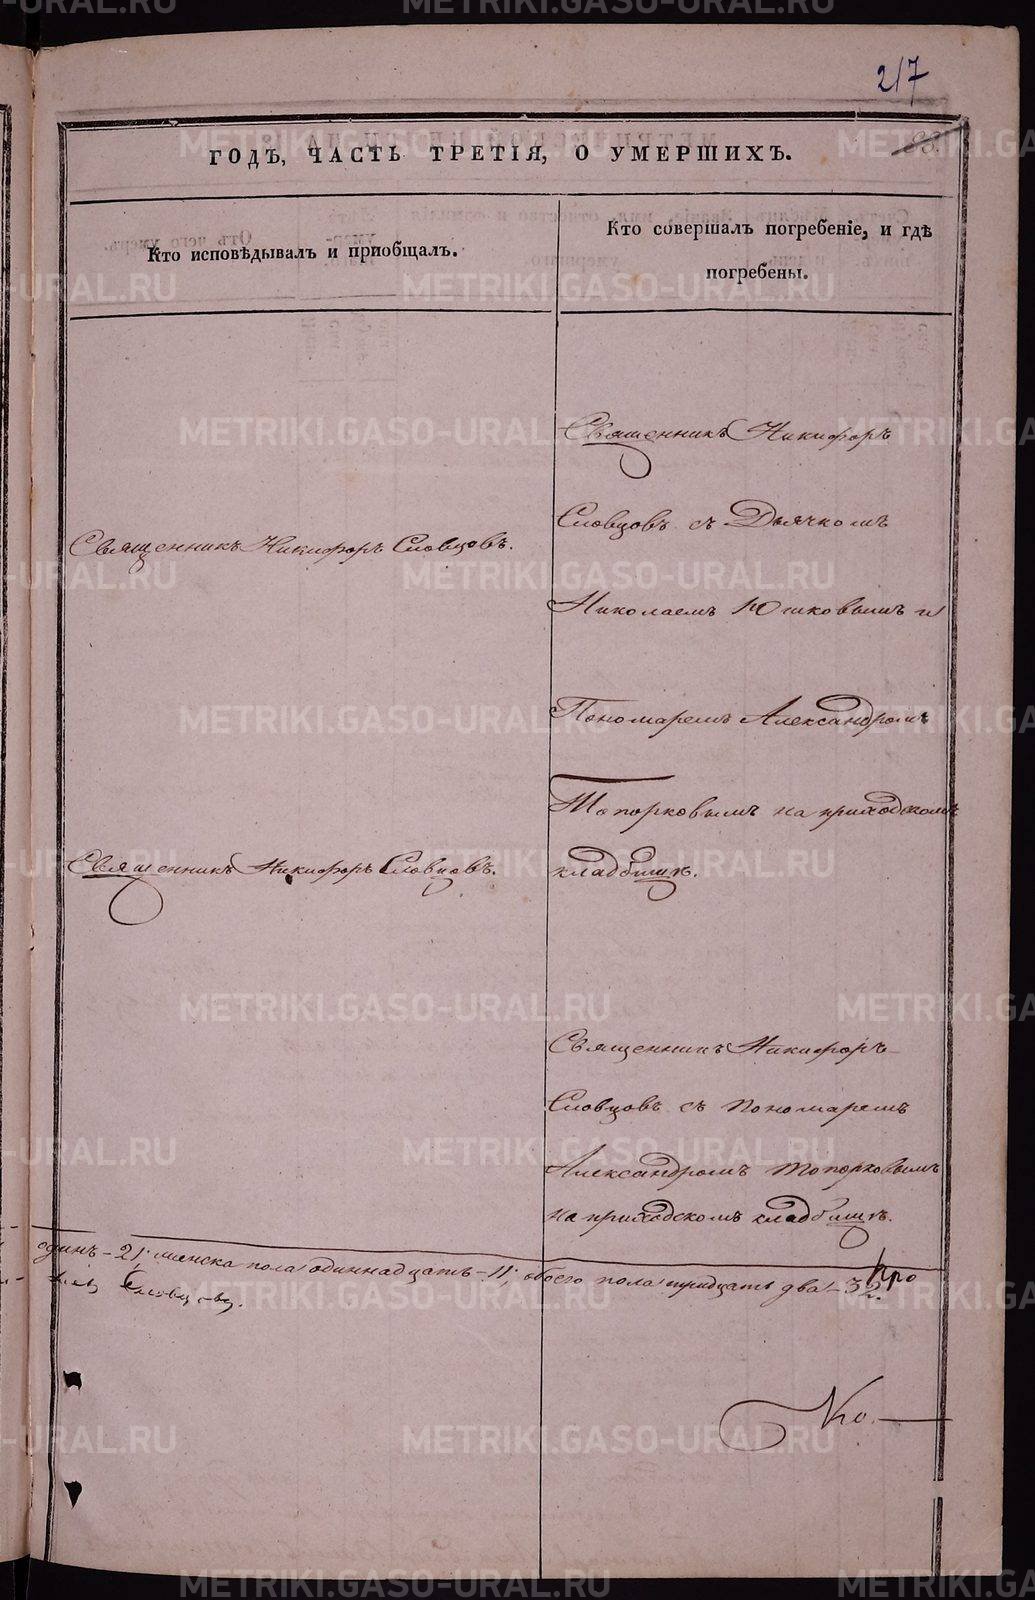 217
ГОДЪ, ЧАСТЬ ТРЕТІЯ, О УМЕРШИХЪ.
Кто исповѣдывалъ и пріобщалъ.
Кто совершалъ погребеніе, и гдѣ
погребены.
Священникъ Никифоръ
Словцовъ съ Дьячкомъ
Священникъ Никифоръ Словцовъ.
Николаемъ Юшковымъ и
Пономаремъ Александромъ
Топорковымъ на приходскомъ
Священникъ Никифоръ Словцовъ.
кладбищѣ.
Священникъ Никифоръ
Словцовъ съ Пономаремъ
Александромъ Топорковымъ
на приходскомъ кладбищѣ.
одинъ - 21; женска пола одиннадцать - 11; обоего пола тридцать два - 32.
Словцовъ.
METRIKI.GASO-URAL.RU